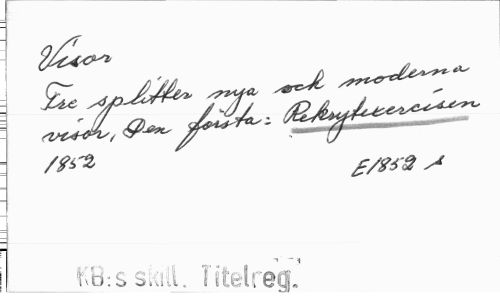 Visor
Tre splitter nya och moderna
visor, Den första: Rekrytexercisen
1852 E1852 s
KB:s skill. Titelreg.